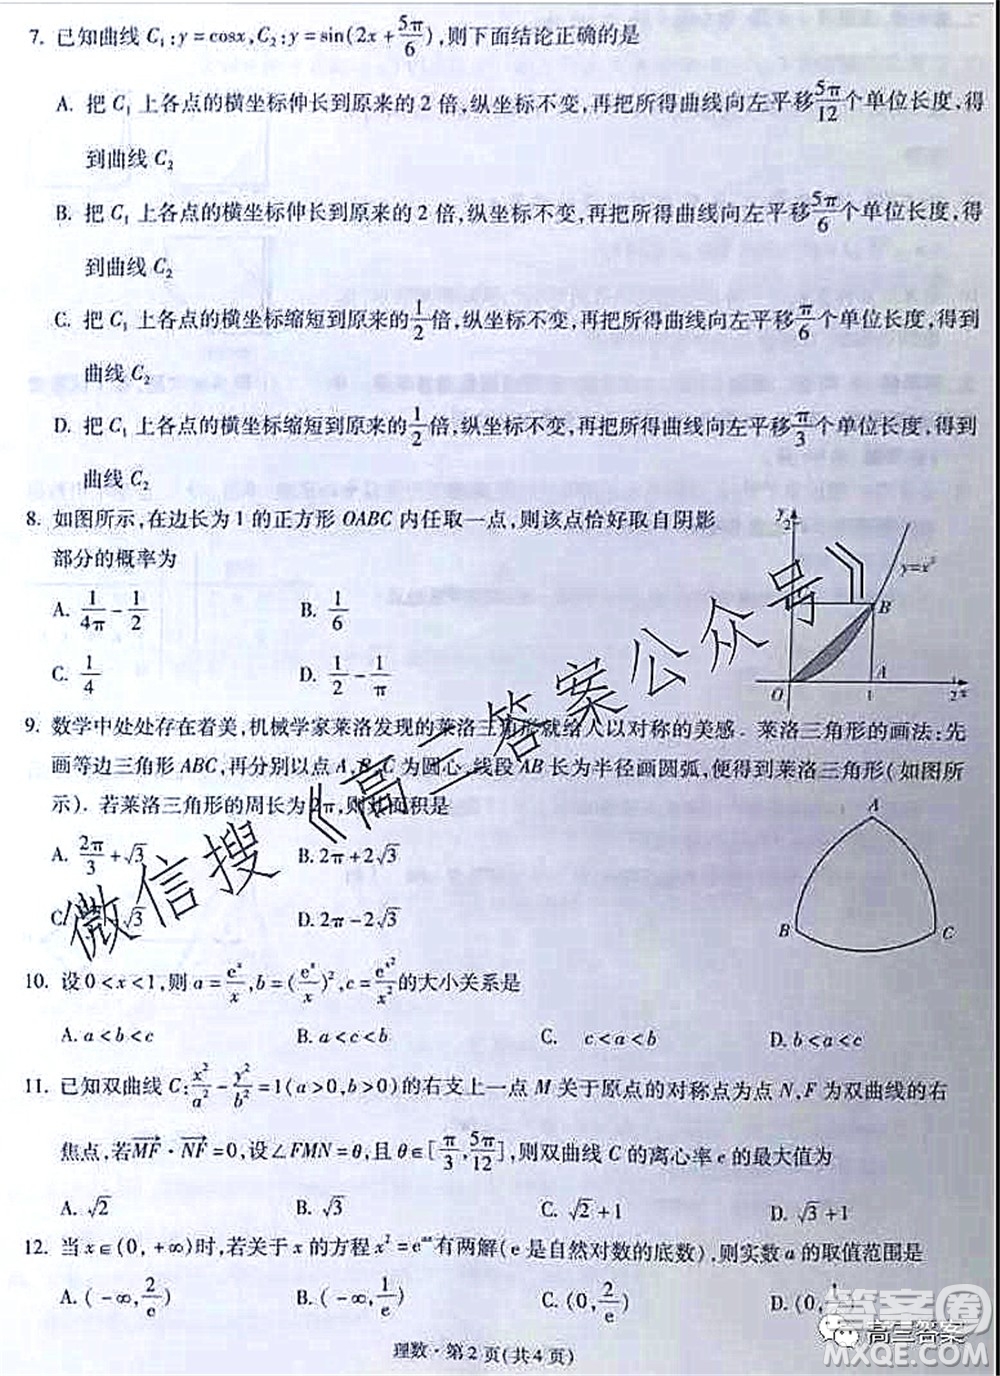 7. 已知曲线 C₁:y=cosx,C₂:y=sin(2x+5π/6),则下面结论正确的是
A. 把 C₁ 上各点的横坐标伸长到原来的 2 倍,纵坐标不变,再把所得曲线向左平移5π/12个单位长度,得
到曲线 C₂
B. 把 C₁ 上各点的横坐标伸长到原来的 2 倍,纵坐标不变,再把所得曲线向左平移5π/6个单位长度,得
到曲线 C₂
C. 把 C₁ 上各点的横坐标缩短到原来的1/2倍,纵坐标不变,再把所得曲线向左平移π/6个单位长度,得到
曲线 C₂
D. 把 C₁ 上各点的横坐标缩短到原来的1/2倍,纵坐标不变,再把所得曲线向左平移π/3个单位长度,得到
曲线 C₂
8. 如图所示,在边长为 1 的正方形 OABC 内任取一点,则该点恰好取自阴影
部分的概率为
A. 1/4π-1/2 B. 1/6
C. 1/4 D. 1/2-1/π
y 2 y=x² B O 1 A 2 x
9. 数学中处处存在着美,机械学家莱洛发现的莱洛三角形就给人以对称的美感. 莱洛三角形的画法:先
画等边三角形 ABC,再分别以点 A,B,C 为圆心,线段 AB 长为半径画圆弧,便得到莱洛三角形(如图所
示). 若莱洛三角形的周长为 2π,则其面积是
A. 2π/3+√3 B. 2π+2√3
C. √3 D. 2π-2√3
A B C
10. 设 0<x<1,则 a=eˣ/x,b=(eˣ/x)²,c=e^x²/x²的大小关系是
A. a<b<c B. b<a<c C. c<a<b D. a<c<b
11. 已知双曲线 C:x²/a²-y²/b²=1(a>0,b>0)的右支上一点 M 关于原点的对称点为点 N,F 为双曲线的右
焦点,若MF·NF=0,设∠FMN=θ,且 θ∈[π/3,5π/12],则双曲线 C 的离心率 e 的最大值为
A. √2 B. √3 C. √2+1 D. √3+1
12. 当 x∈(0,+∞)时,若关于 x 的方程 x²=e^ax有两解(e 是自然对数的底数),则实数 a 的取值范围是
A. (-∞,2/e) B. (-∞,1/e) C. (0,2/e) D. (0,1/e)
理数·第 2 页(共 4 页)
微信搜《高三答案公众号》
高三答案
答案圈
MXQE.COM